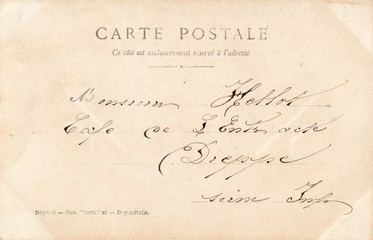 CARTE POSTALE
Ce côté est exclusivement réservé à l'adresse
Monsieur Hellot
Café de L'Entr'acte
Dieppe
Seine Inf